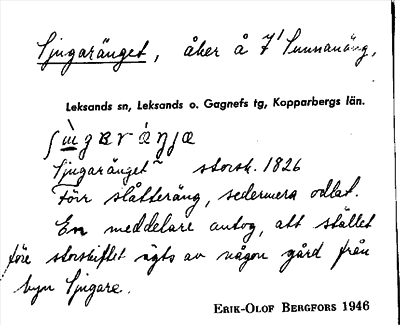 Ljugaränget, åker å 7¹ Sunnanäng,
Leksands sn, Leksands o. Gagnefs tg, Kopparbergs län.
Ljugaränget ~ storsk. 1826
Förr slåtteräng, sedermera odlat.
En meddelare antog, att stället
före storskiftet ägts av någon gård från
byn Ljugare.
ERIK-OLOF BERGFORS 1946